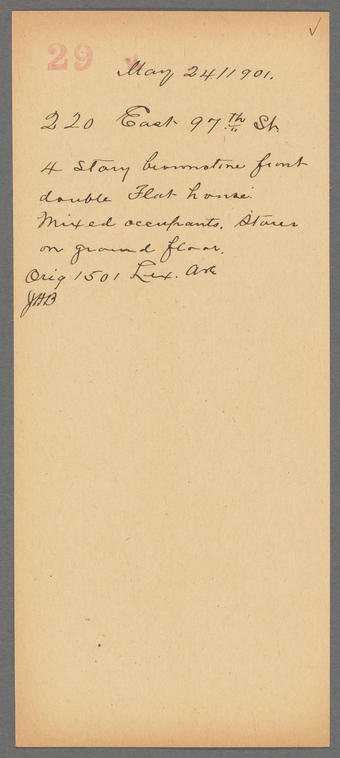 29 ✓
May 24/1901.
220 East 97th St.
4 Story brownstone front
double Flat house.
Mixed occupants. Stores
on ground floor.
Orig 1501 Lex. Ave
JHB